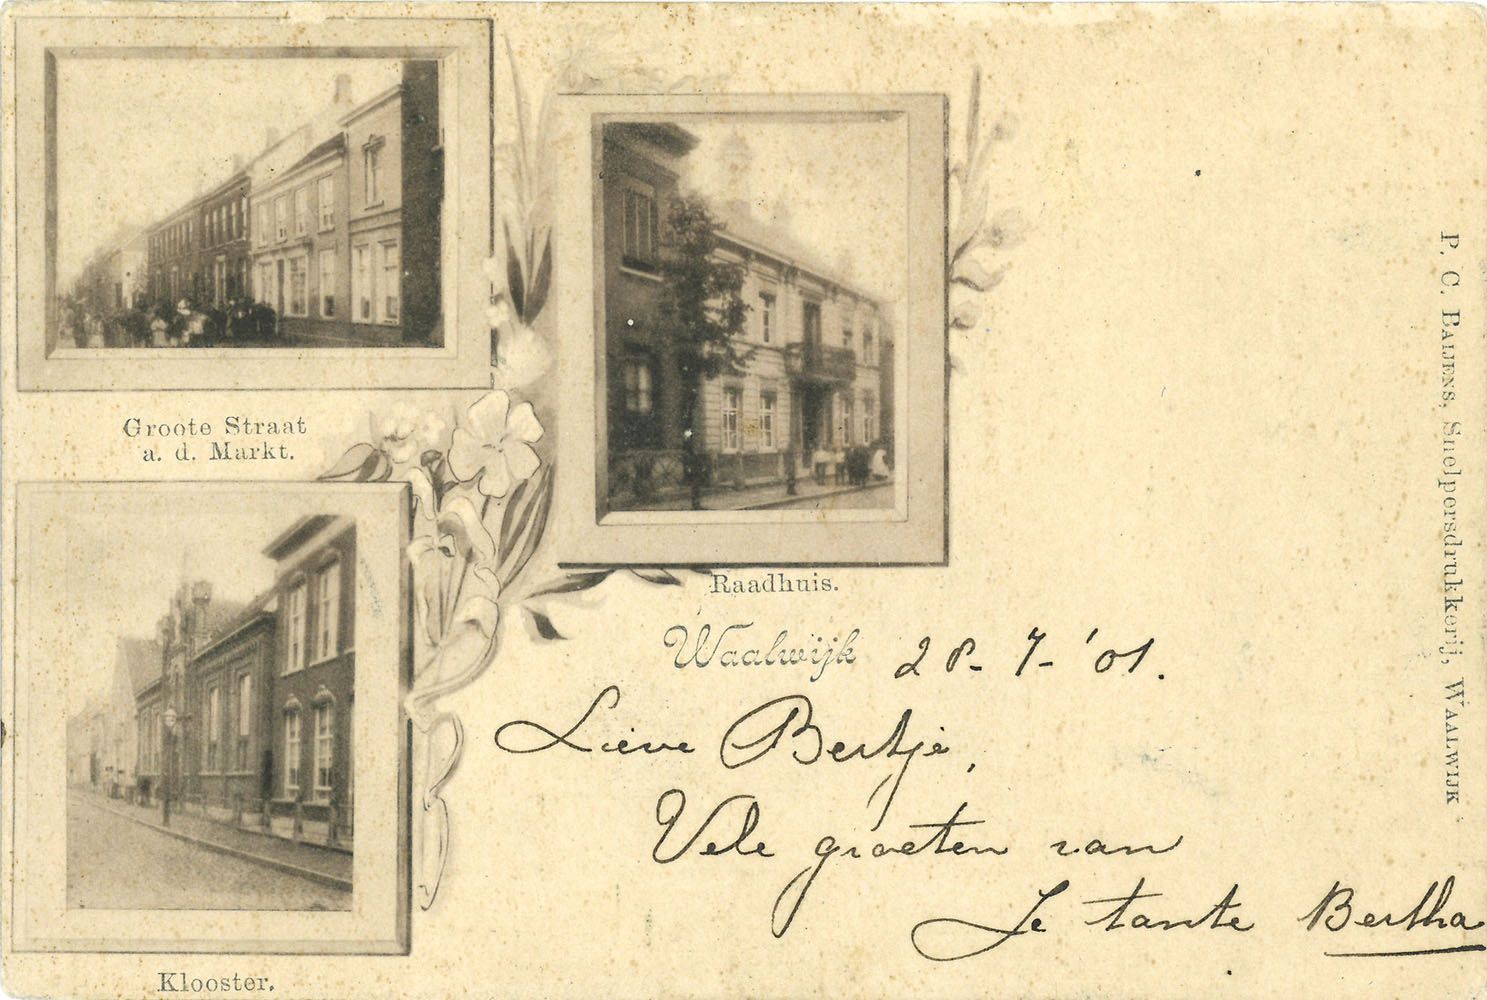 Groote Straat
a. d. Markt.
Raadhuis.
Klooster.
Waalwijk 28-7-'01.
Lieve Bertje,
Vele groeten van
Je tante Bertha
P. C. Baijens, Snelpersdrukkerij, Waalwijk